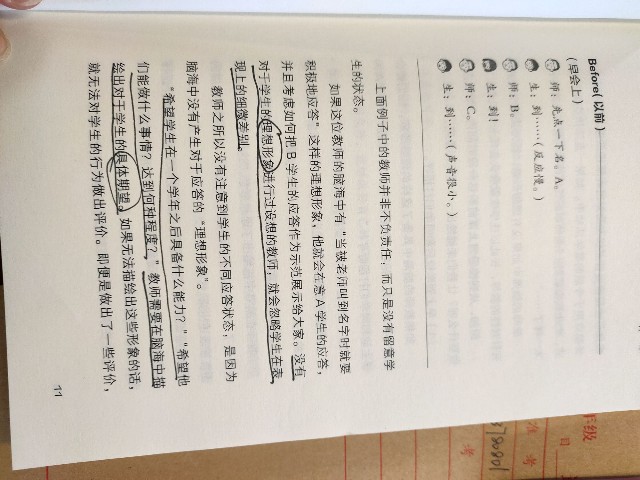 Before(以前)
(早会上)
师：先点一下名。A。
生：到……(反应慢。)
师：B。
生：到！
师：C。
生：到……(声音很小。)
上面例子中的教师并非不负责任，而只是没有留意学
生的状态。
如果这位教师的脑海中有“当被老师叫到名字时就要
积极地应答”这样的理想形象，他就会在意A学生的应答，
并且考虑如何把B学生的应答作为示范展示给大家。没有
对于学生的理想形象进行过设想的教师，就会忽略学生在表
现上的细微差别。
教师之所以没有注意到学生的不同应答状态，是因为
脑海中没有产生对于应答的“理想形象”。
“希望学生在一个学年之后具备什么能力？”“希望他
们能做什么事情？达到何种程度？”教师需要在脑海中描
绘出对于学生的具体期望。如果无法描绘出这些形象的话，
就无法对学生的行为做出评价。即便是做出了一些评价，
11
年级
准考
考